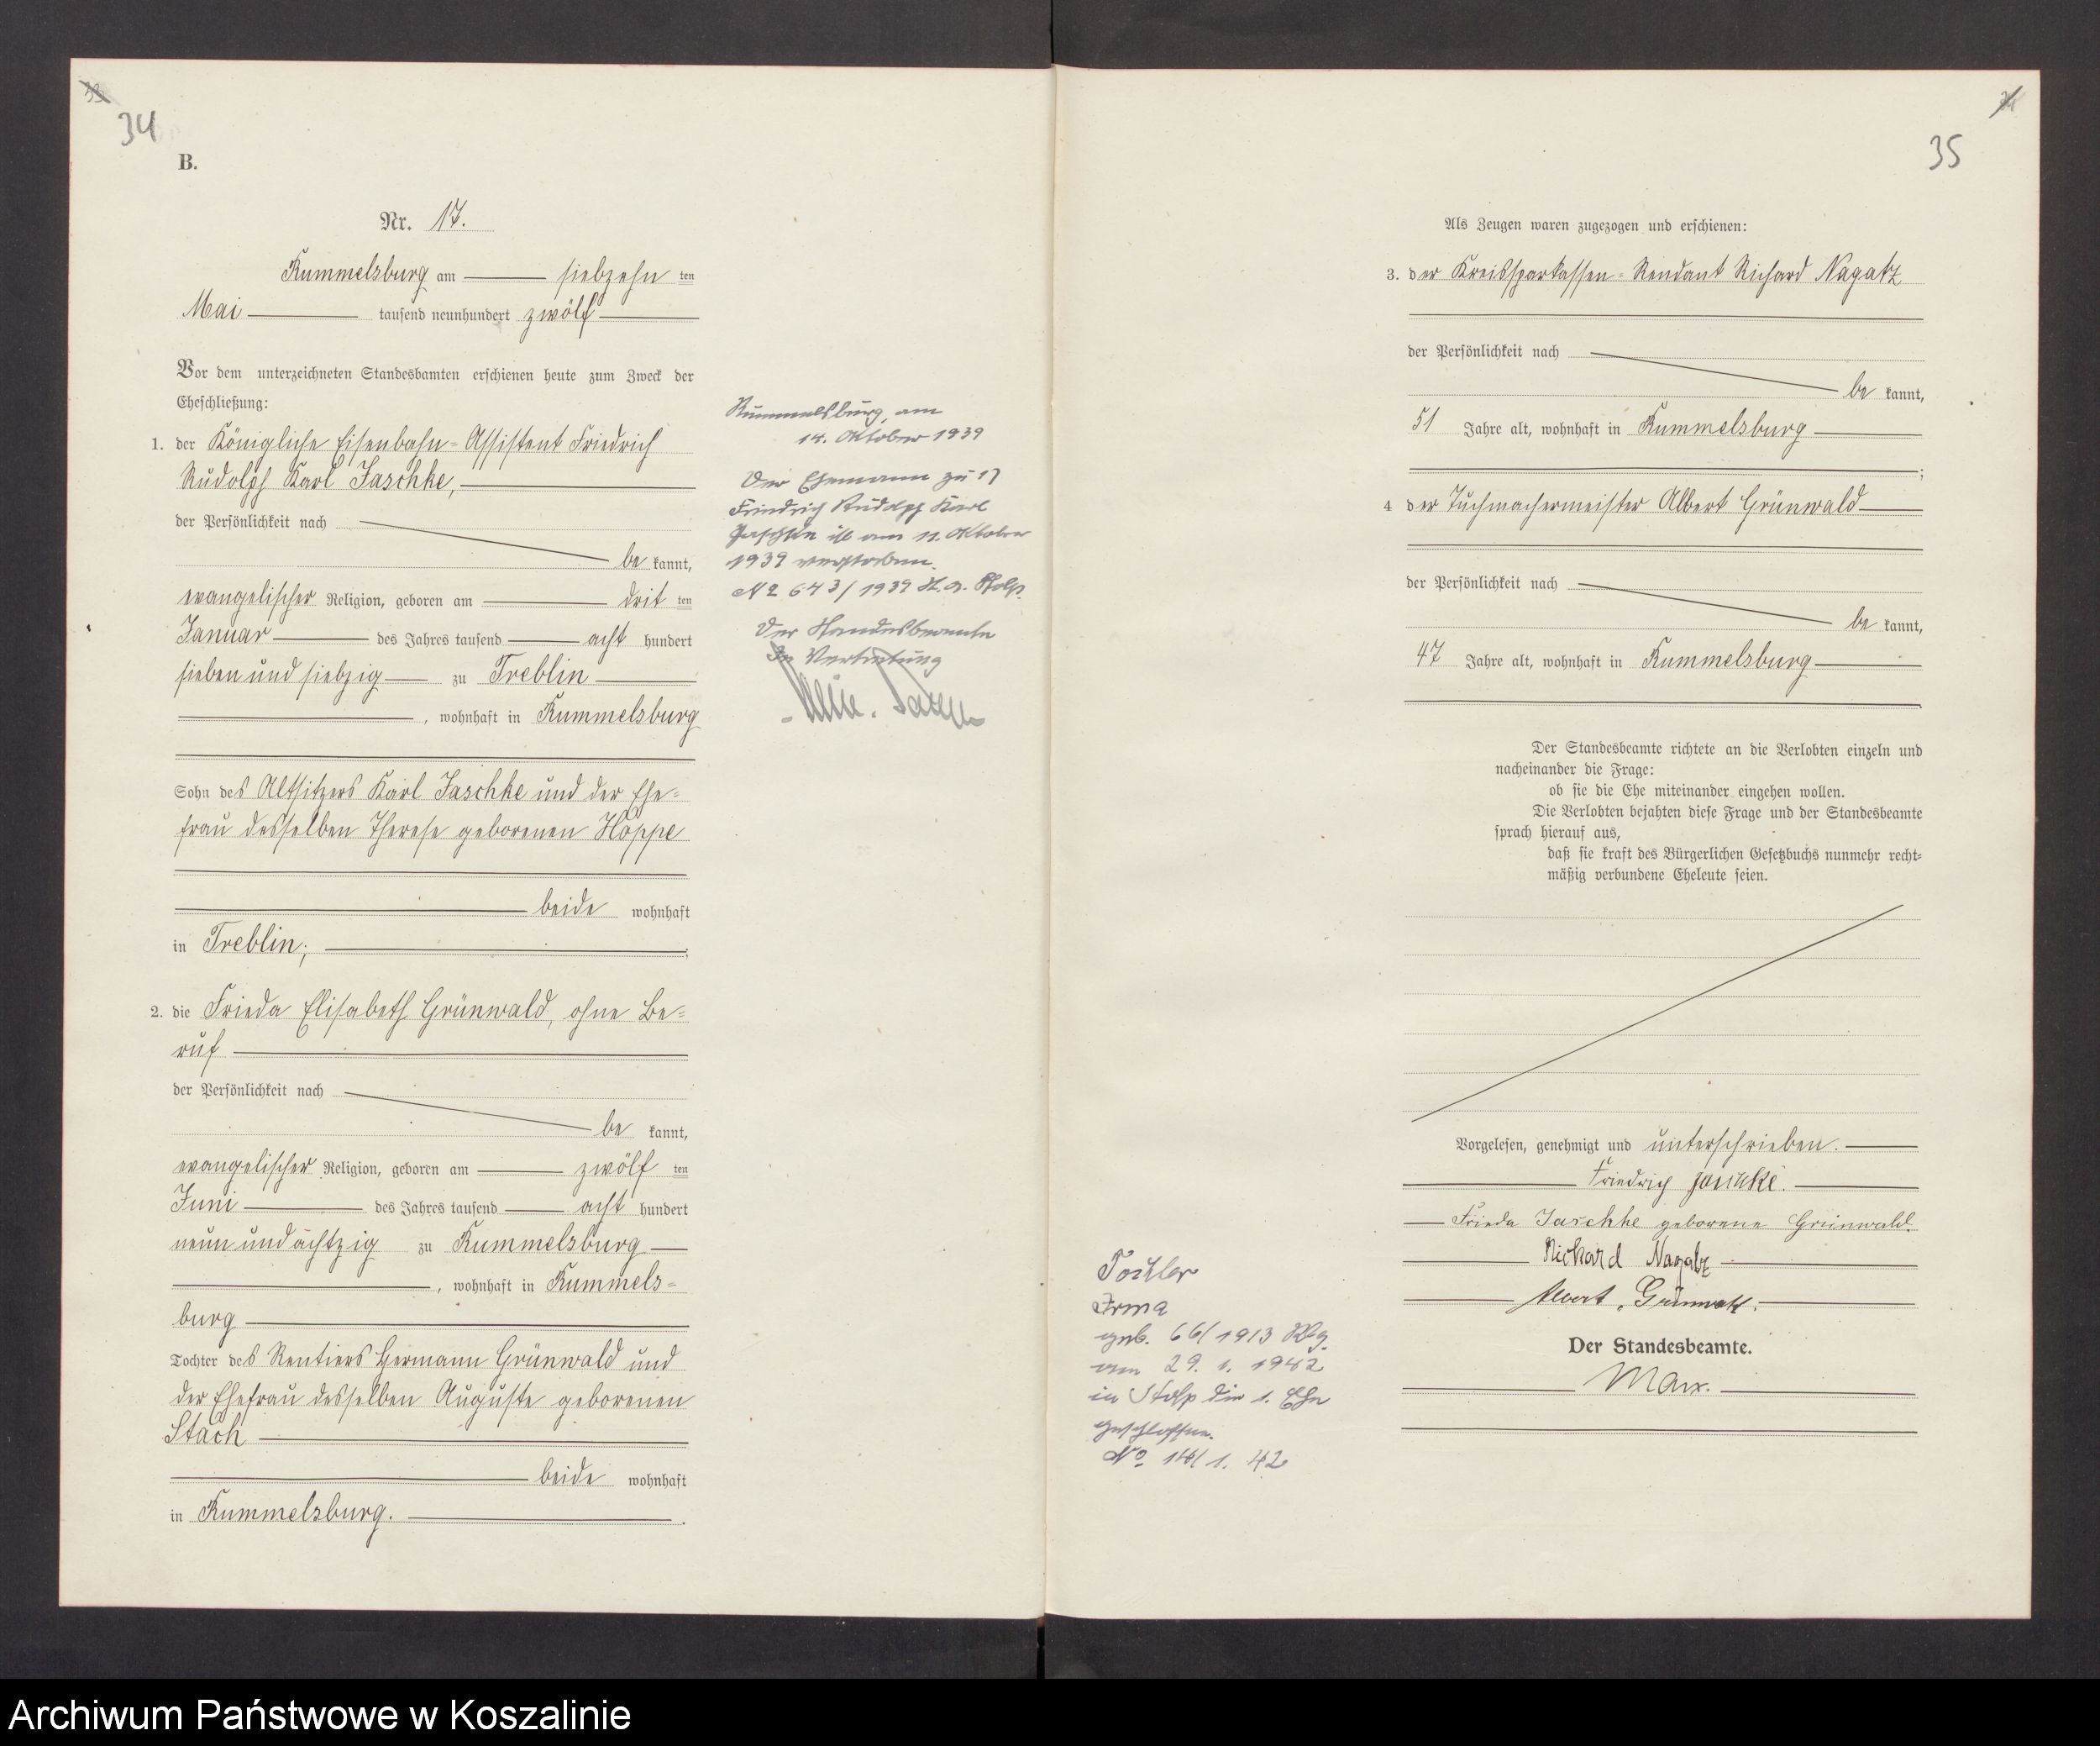 34
B.
Nr. 17.
Rummelsburg am siebzehn ten
Mai tausend neunhundert zwölf
Vor dem unterzeichneten Standesbamten erschienen heute zum Zweck der
Eheschließung:
1. der Königliche Eisenbahn-Assistent Friedrich
Rudolph Karl Jaschke,
der Persönlichkeit nach
be kannt,
evangelischer Religion, geboren am drit ten
Januar des Jahres tausend acht hundert
sieben und siebzig zu Treblin
, wohnhaft in Rummelsburg
Sohn des Altsitzers Karl Jaschke und der Ehe-
frau desselben Therese geborenen Hoppe
beide wohnhaft
in Treblin;
2. die Frieda Elisabeth Grünwald, ohne Be-
ruf
der Persönlichkeit nach
be kannt,
evangelischer Religion, geboren am zwölf ten
Juni des Jahres tausend acht hundert
neun und achtzig zu Rummelsburg
, wohnhaft in Rummels-
burg
Tochter des Rentiers Hermann Grünwald und
der Ehefrau desselben Auguste geborenen
Stach
beide wohnhaft
in Rummelsburg.
Rummelsburg, am
14. Oktober 1939
Der Ehemann zu 1)
Friedrich Rudolph Karl
Jaschke ist am 11. Oktober
1939 verstorben.
No 643/1939 St. A. Stolp.
Der Standesbeamte
In Vertretung
35
Als Zeugen waren zugezogen und erschienen:
3. der Kreissparkassen-Rendant Richard Nagatz
der Persönlichkeit nach
be kannt,
51 Jahre alt, wohnhaft in Rummelsburg
;
4 der Tuchmachermeister Albert Grünwald
der Persönlichkeit nach
be kannt,
47 Jahre alt, wohnhaft in Rummelsburg
Der Standesbeamte richtete an die Verlobten einzeln und
nacheinander die Frage:
ob sie die Ehe miteinander eingehen wollen.
Die Verlobten bejahten diese Frage und der Standesbeamte
sprach hierauf aus,
daß sie kraft des Bürgerlichen Gesetzbuchs nunmehr recht-
mäßig verbundene Eheleute seien.
Vorgelesen, genehmigt und unterschrieben.
Friedrich Jaschke.
Frieda Jaschke geborene Grünwald.
Richard Nagatz
Albert Grünwald.
Der Standesbeamte.
Marx.
Tochter
Irma
geb. 66/1913 Rbg.
am 29. 1. 1942
in Stolp die 1. Ehe
geschlossen.
No 14/1. 42
Archiwum Państwowe w Koszalinie